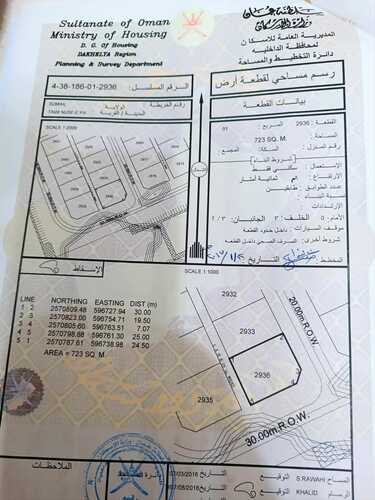 Sultanate of Oman
Ministry of Housing
D. G. Of Housing
DAKHELYA Region
Planning & Survey Department
سلطنة عمان
وزارة الإسكان
المديرية العامة للاسكان
لمحافظة الداخلية
دائرة التخطيط والمساحة
4-38-186-01-2936
الرقم المسلسل :
رسم مساحي لقطعة أرض
SUMAIL
الولاية
المدينة / القرية
رقم الخريطة
بيانات القطعة
SCALE 1:2500
القطعة : 2936
المربع : 01
723 SQ. M.
رقم المنزل :
السكة :
المجمع :
شروط البناء
الاستعمال :
سكني فقط
الارتفاع :
ثمانية أمتار
عدد الطوابق :
طابقين
الارتدادات
الأمام : 5
الخلف : 3
الجانبان : 3 / 3
موقف السيارات : داخل حدود القطعة
شروط أخرى : الصرف الصحي داخل القطعة
المخطط
التاريخ
الإسقاط
SCALE 1:1000
LINE NORTHING EASTING DIST (m)
1 2 2570809.48 596727.94 30.00
2 3 2570823.00 596754.71 19.50
3 4 2570805.60 596763.51 7.07
4 5 2570798.88 596761.30 25.00
5 1 2570787.61 596738.98 24.50
AREA = 723 SQ. M.
2932
2933
2936
2935
20.00m R.O.W.
30.00m R.O.W.
الملاحظات
07/03/2016
07/08/2016
التوقيع
S.RAWAHI
المساح
التوقيع
KHALID